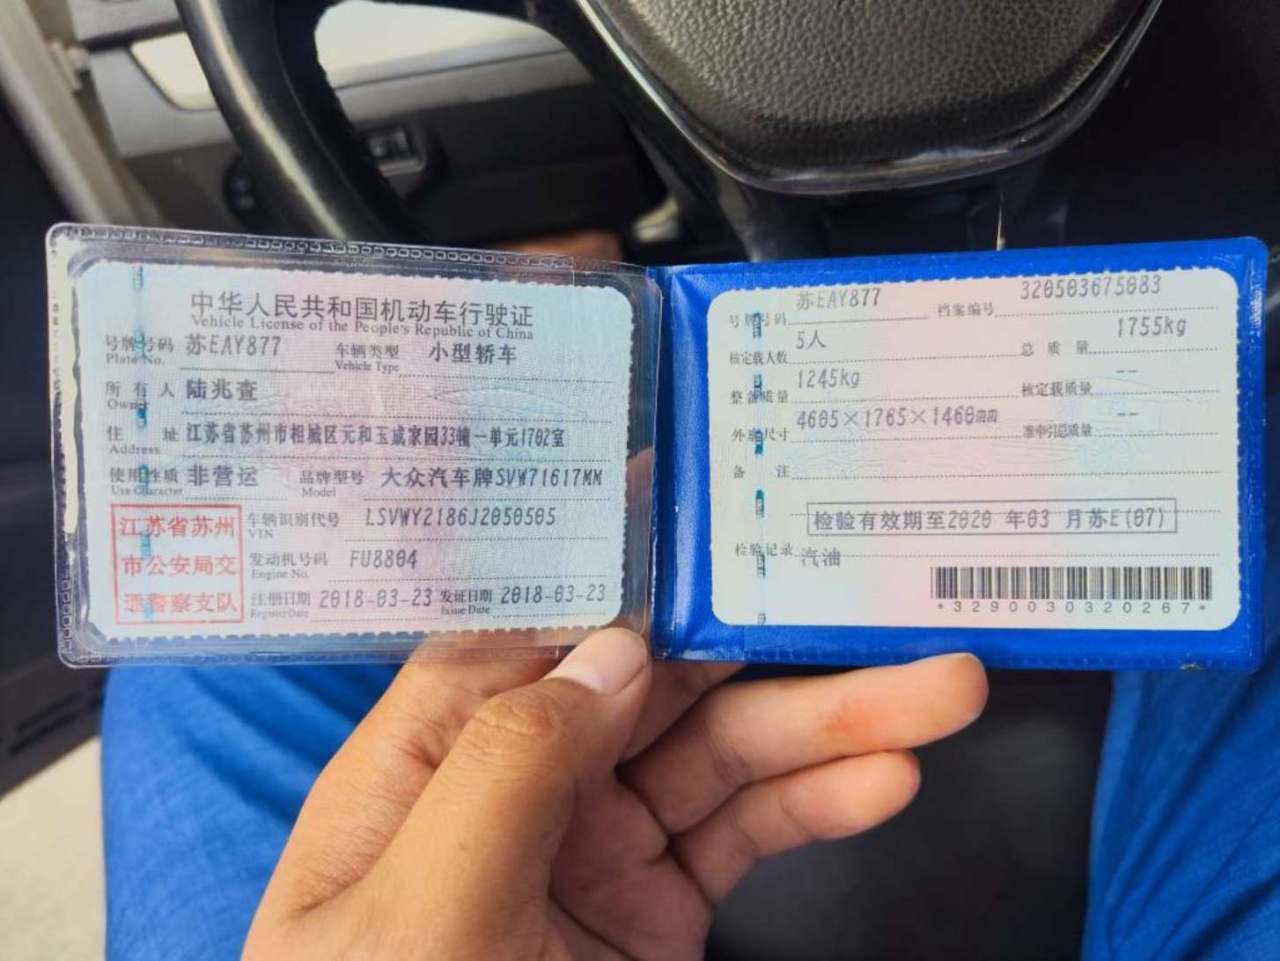 中华人民共和国机动车行驶证
Vehicle License of the People's Republic of China
号牌号码 苏EAY877 车辆类型 小型轿车
Plate No. Vehicle Type
所有人 陆兆查
Owner
住址 江苏省苏州市相城区元和玉成家园33幢一单元1702室
Address
使用性质 非营运 品牌型号 大众汽车牌SVW71617MM
Use Character Model
江苏省苏州
市公安局交
通警察支队
车辆识别代号 LSVWY2186J2050505
VIN
发动机号码 FU8804
Engine No.
注册日期 2018-03-23 发证日期 2018-03-23
Register Date Issue Date
号牌号码 苏EAY877 档案编号 320503675083
核定载人数 5人 总质量 1755kg
整备质量 1245kg 核定载质量 --
外廓尺寸 4605×1765×1460mm 准牵引总质量 --
备注
检验有效期至2020 年03 月苏E(07)
检验记录 汽油
*3290030320267*